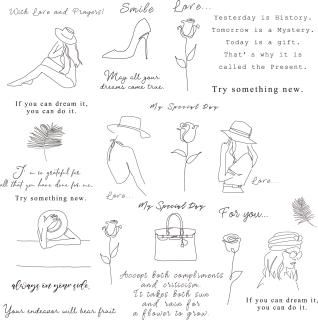 With Love and Prayers!
Smile
Love...
Yesterday is History.
Tomorrow is a Mystery.
Today is a gift.
That's why it is
called the Present.
May all your
dreams come true.
Try something new.
If you can dream it,
you can do it.
My Special Day
I'm so grateful for
all that you have done for me.
Try something new.
Love...
Love...
My Special Day
For you...
always on your side.
Accept both compliments
and criticism.
It takes both sun
and rain for
a flower to grow.
Your endeavor will bear fruit
If you can dream it,
you can do it.